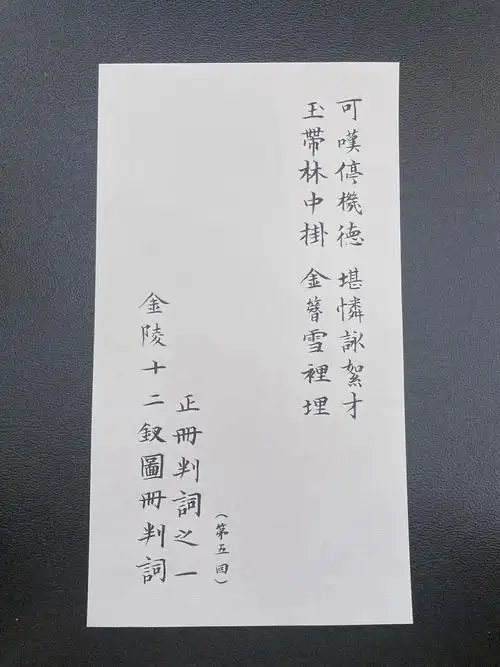 可嘆停機德 堪憐詠絮才
玉帶林中掛 金簪雪裡埋
(第五回)
正冊判詞之一
金陵十二釵圖冊判詞